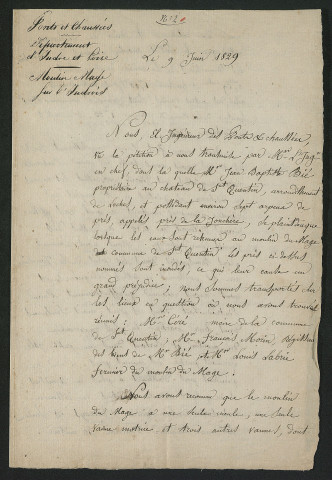 N° 2
Ponts et Chaussées
Département
d'Indre et Loire
Moulin du Mage
sur l'Indrois
Le 9 Juin 1829
Nous, El. Ingénieur des Ponts et chaussées,
vu la pétition à nous transmise par Mr. l'Ing.
en chef, dans laquelle Mr. Jean Baptiste Bié
propriétaire au chateau de St. Quentin, arrondissement
de Loches, et possédant environ Sept arpens de
prés, appelés prés de la Jonchère, se plaint que
lorsque les eaux sont retenues au moulin du Mage
commune de St. Quentin, les prés ci-dessus
nommés sont inondés, ce qui leur cause un
grand préjudice; nous sommes transportés sur
les lieux en question où nous avons trouvé
réunis: Mr. Côré maire de la commune
de St. Quentin, Mr. François Morin, Régisseur
des biens de Mr. Bié et Mr. Louis Labrie
fermier du moulin du Mage.
Nous avons reconnu que le moulin
du Mage a une seule roue, une seule
vanne motrice et trois autres vannes, dont